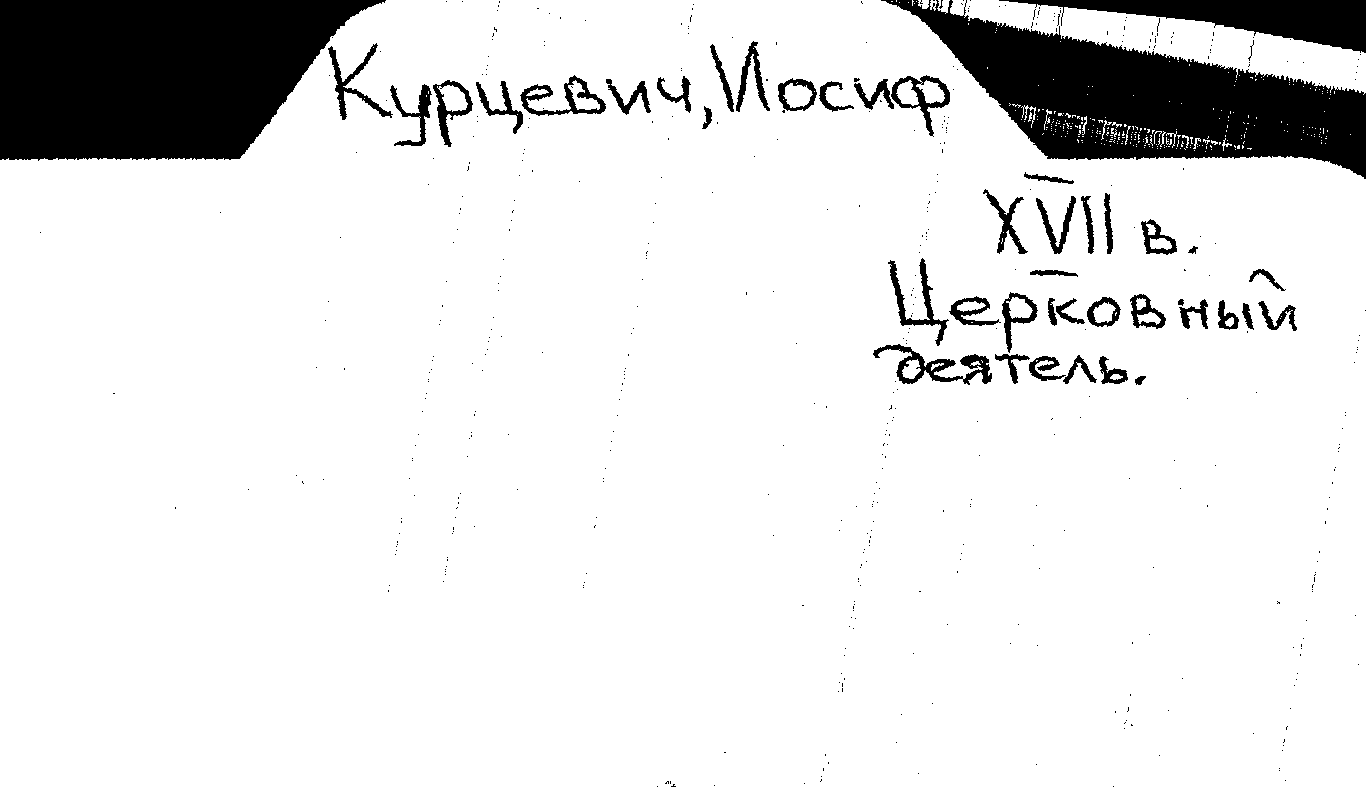 Курцевич, Иосиф
XVII в.
Церковный
деятель.